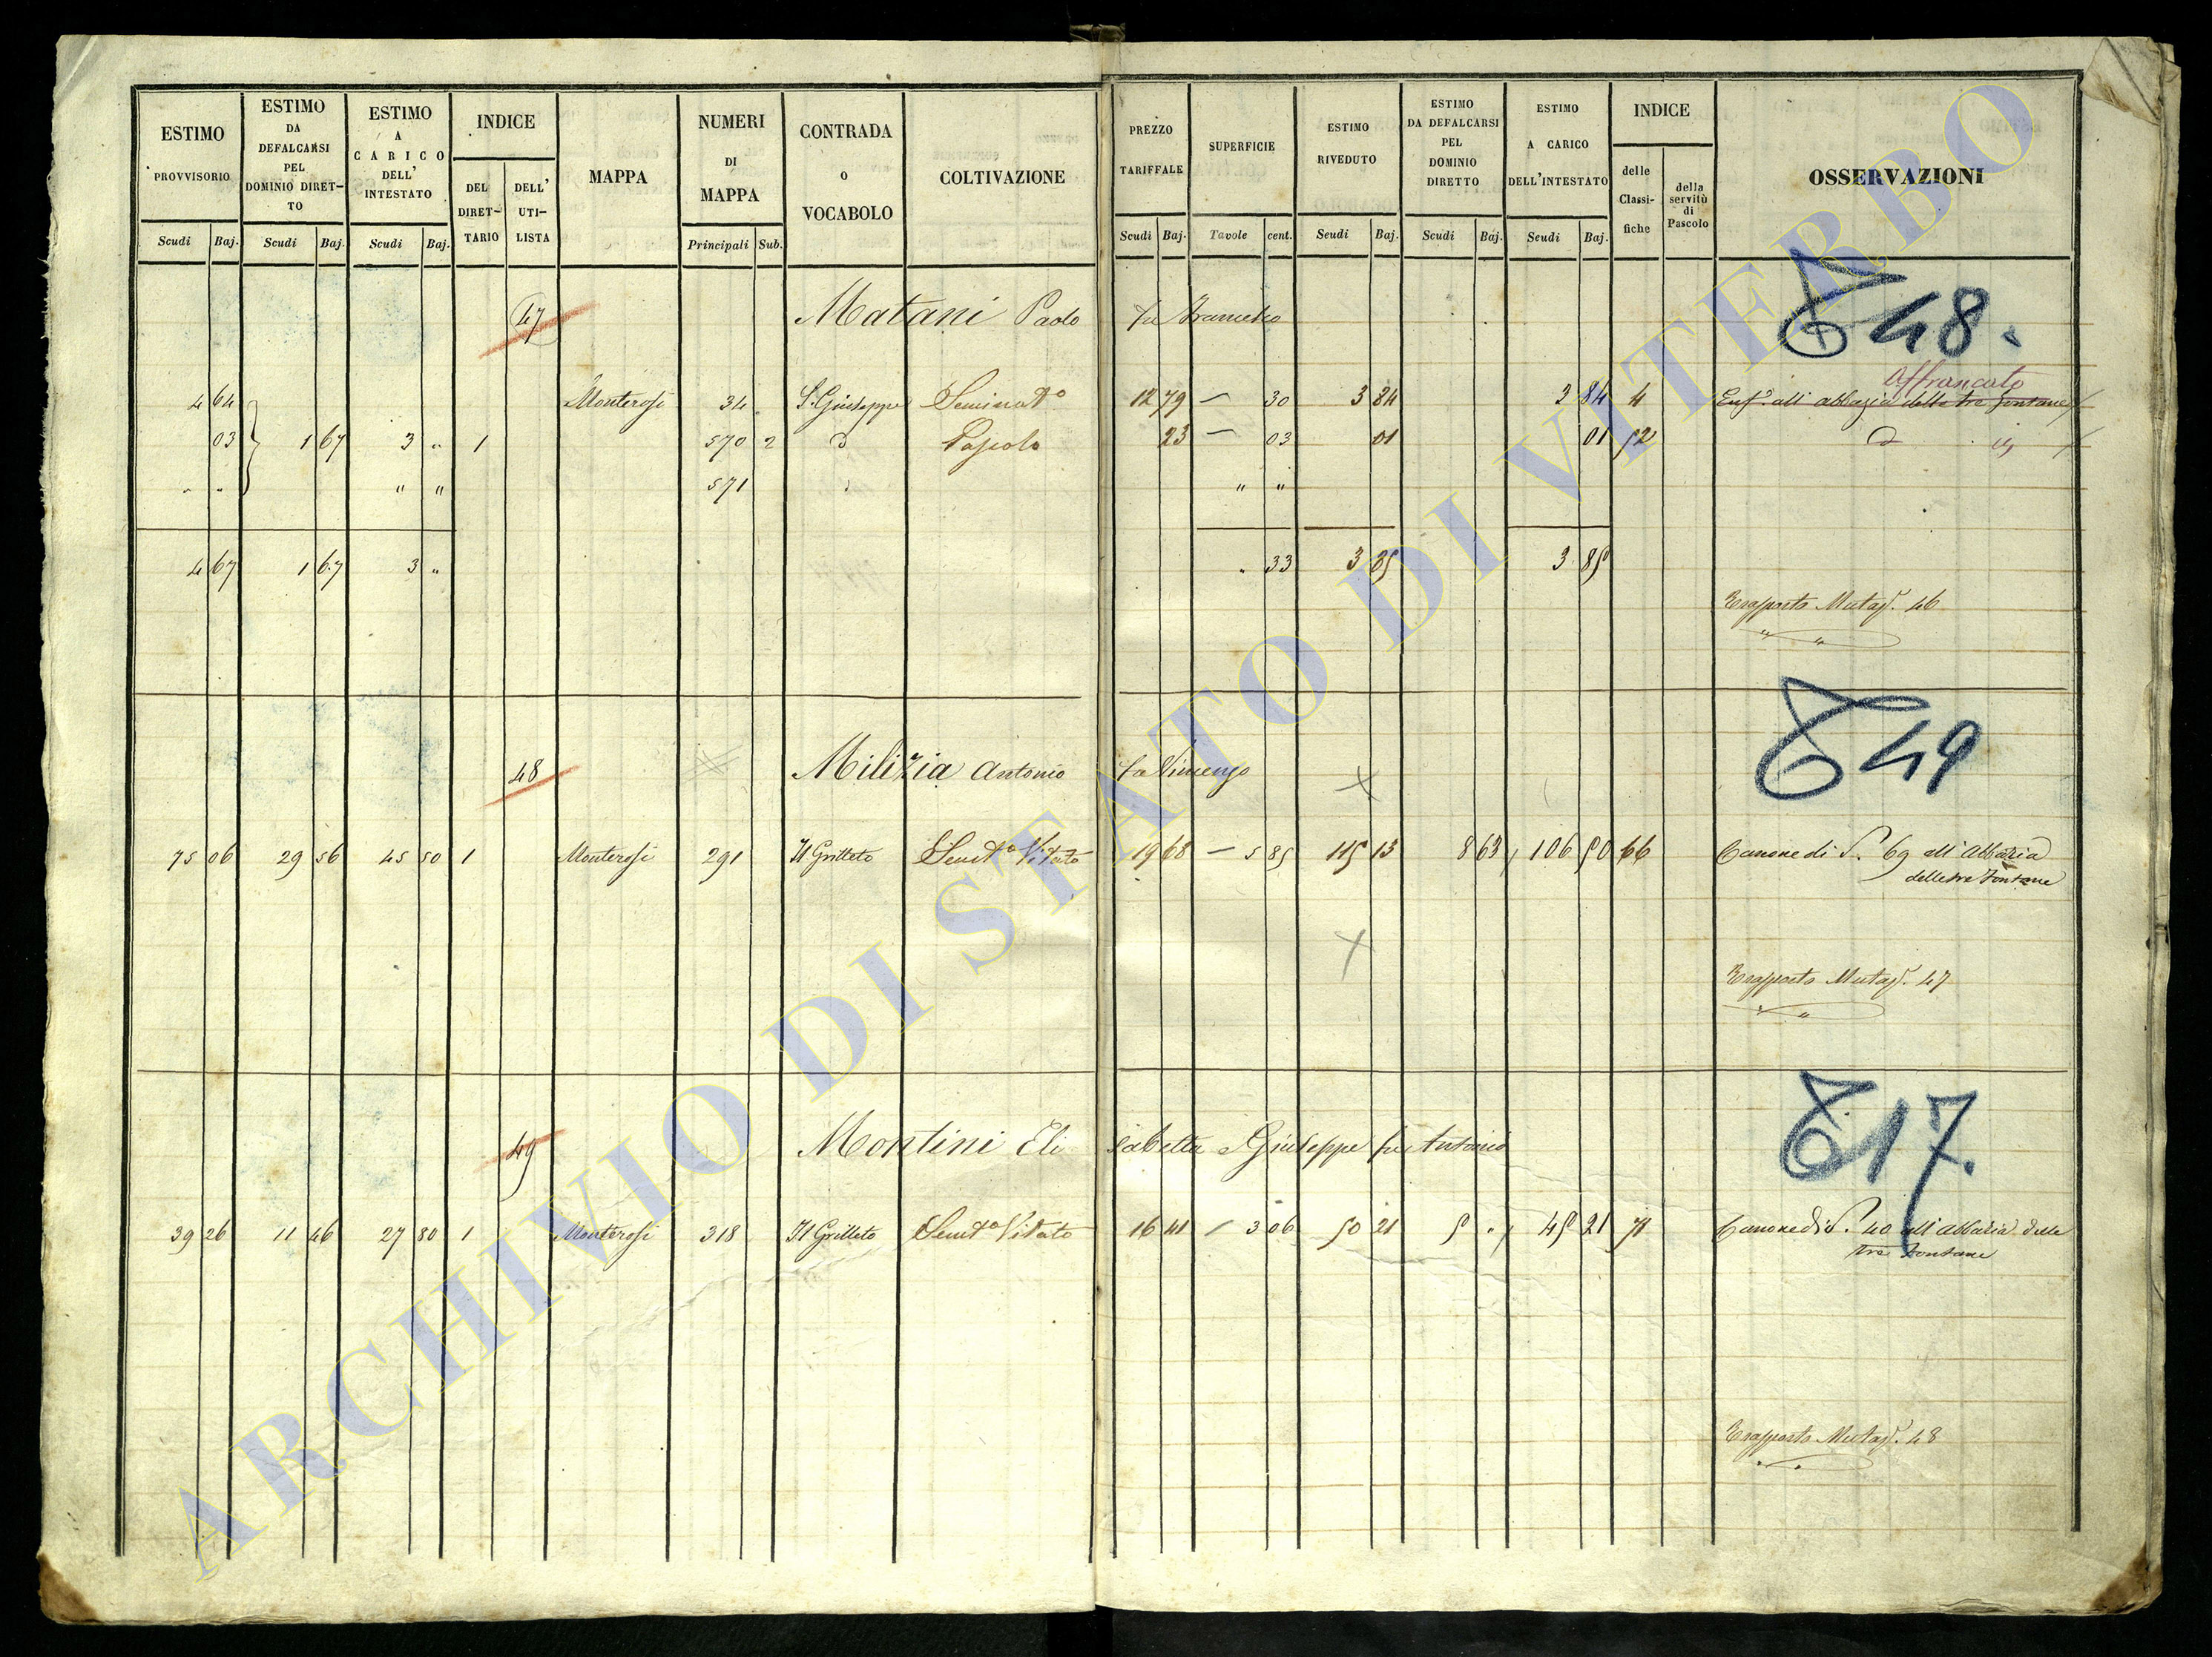 ESTIMO PROVVISORIO Scudi Baj.
ESTIMO DA DEFALCARSI PEL DOMINIO DIRET-TO Scudi Baj.
ESTIMO A CARICO DELL' INTESTATO Scudi Baj.
INDICE DEL DIRET-TARIO DELL' UTI-LISTA
MAPPA
NUMERI DI MAPPA Principali Sub.
CONTRADA O VOCABOLO
COLTIVAZIONE
PREZZO TARIFFALE Scudi Baj.
SUPERFICIE Tavole cent.
ESTIMO RIVEDUTO Scudi Baj.
ESTIMO DA DEFALCARSI PEL DOMINIO DIRETTO Scudi Baj.
ESTIMO A CARICO DELL'INTESTATO Scudi Baj.
INDICE delle Classi-fiche della servitù di Pascolo
OSSERVAZIONI
47 Matani Paolo fu Francesco 48.
Affrancato
4 64 Monterosi 34 S. Giuseppe Seminato 12 79 — 30 3 84 3 84 4 all' abbazia delle tre fontane
03 1 67 3 " 1 570 2 d Pascolo 23 — 03 01 01 52 d
" " " " 571 " "
4 67 1 67 3 " " 33 3 85 3 85
Trasporto Mutaz. 46
48 Milizia Antonio fu Vincenzo 49
75 06 29 56 45 50 1 Monterosi 291 Il Grilleto Semto Vitato 19 68 — 5 85 115 13 8 63 106 50 66 Canone di S. 69 all' Abbazia
delle tre Fontane
Trasporto Mutaz. 47
49 Montini Elisabetta e Giuseppe fu Antonio 17.
39 26 11 46 27 80 1 Monterosi 318 Il Grilleto Semto Vitato 16 41 3 06 50 21 5 " 45 21 71 Canone di S. 40 all' abbazia delle
tre Fontane
Trasporto Mutaz. 48
ARCHIVIO DI STATO DI VITERBO